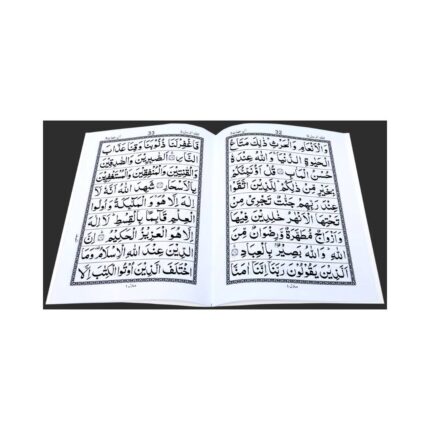 32
وَالْاَنْعَامِ وَالْحَرْثِ ذٰلِكَ مَتَاعُ
الْحَيٰوةِ الدُّنْيَا وَاللّٰهُ عِنْدَهٗ
حُسْنُ الْمَاٰبِ ۝ قُلْ اَؤُنَبِّئُكُمْ
بِخَيْرٍ مِّنْ ذٰلِكُمْ لِلَّذِيْنَ اتَّقَوْا
عِنْدَ رَبِّهِمْ جَنّٰتٌ تَجْرِيْ مِنْ
تَحْتِهَا الْاَنْهٰرُ خٰلِدِيْنَ فِيْهَا
وَاَزْوَاجٌ مُّطَهَّرَةٌ وَّرِضْوَانٌ مِّنَ
اللّٰهِ وَاللّٰهُ بَصِيْرٌۢ بِالْعِبَادِ ۝
اَلَّذِيْنَ يَقُوْلُوْنَ رَبَّنَا اِنَّنَا اٰمَنَّا
33
فَاغْفِرْ لَنَا ذُنُوْبَنَا وَقِنَا عَذَابَ
النَّارِ ۝ اَلصّٰبِرِيْنَ وَالصّٰدِقِيْنَ
وَالْقٰنِتِيْنَ وَالْمُنْفِقِيْنَ وَالْمُسْتَغْفِرِيْنَ
بِالْاَسْحَارِ ۝ شَهِدَ اللّٰهُ اَنَّهٗ لَاۤ
اِلٰهَ اِلَّا هُوَ وَالْمَلٰٓئِكَةُ وَاُولُوا
الْعِلْمِ قَآئِمًۢا بِالْقِسْطِ لَاۤ اِلٰهَ
اِلَّا هُوَ الْعَزِيْزُ الْحَكِيْمُ ۝ اِنَّ
الدِّيْنَ عِنْدَ اللّٰهِ الْاِسْلَامُ وَمَا
اخْتَلَفَ الَّذِيْنَ اُوْتُوا الْكِتٰبَ اِلَّا